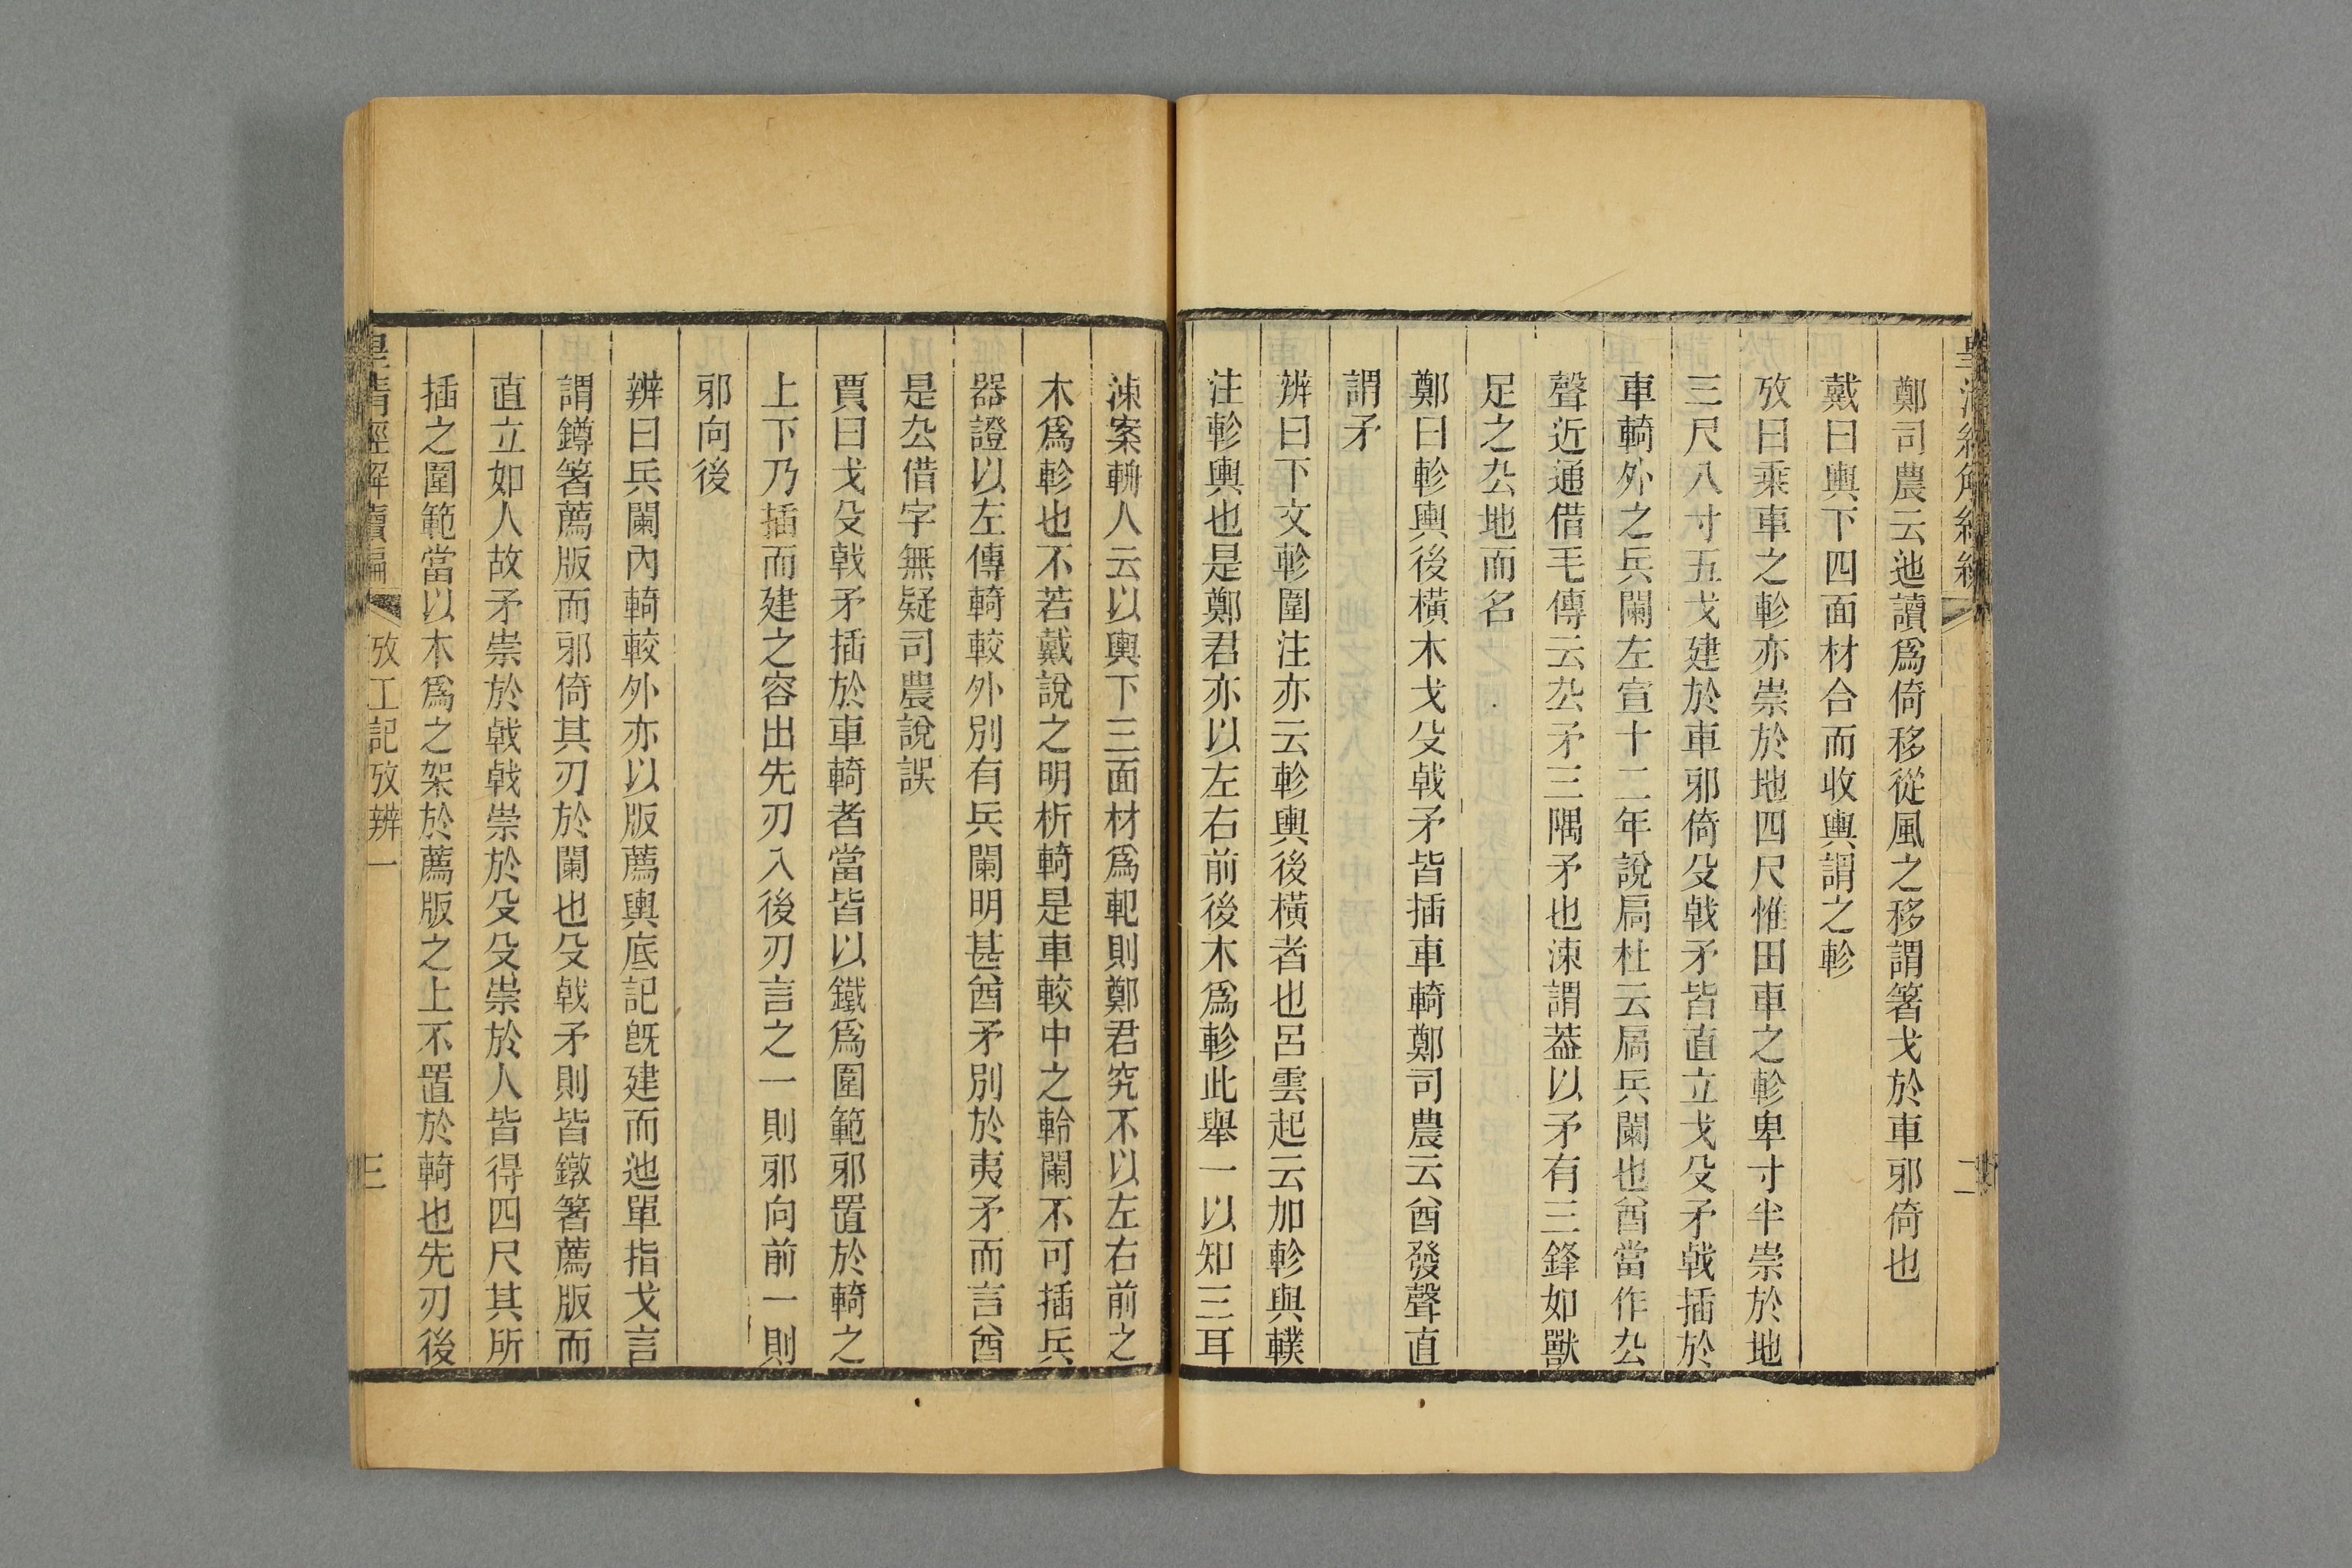 鄭司農云迆讀爲倚移從風之移謂箸戈於車邪倚也
戴曰輿下四面材合而收輿謂之軫
攷曰乘車之軫亦崇於地四尺惟田車之軫卑寸半崇於地
三尺八寸五戈建於車邪倚殳戟矛皆直立戈殳矛戟插於
車輢外之兵闌左宣十二年說扃杜云扃兵闌也酋當作厹
聲近通借毛傳云厹矛三隅矛也涑謂葢以矛有三鋒如獸
足之厹地而名
鄭曰軫輿後橫木戈殳戟矛皆插車輢鄭司農云酋發聲直
謂矛
辨曰下文軫圍注亦云軫輿後橫者也呂雲起云加軫與轐
注軫輿也是鄭君亦以左右前後木爲軫此舉一以知三耳
涑案輈人云以輿下三面材爲軓則鄭君究不以左右前之
木爲軫也不若戴說之明析輢是車較中之軨闌不可插兵
器證以左傳輢較外別有兵闌明甚酋矛別於夷矛而言酋
是厹借字無疑司農說誤
賈曰戈殳戟矛插於車輢者當皆以鐵爲圍範邪置於輢之
上下乃插而建之容出先刃入後刃言之一則邪向前一則
邪向後
辨曰兵闌內輢較外亦以版薦輿底記旣建而迆單指戈言
謂鐏箸薦版而邪倚其刃於闌也殳戟矛則皆鐓箸薦版而
直立如人故矛崇於戟戟崇於殳殳崇於人皆得四尺其所
插之圍範當以木爲之架於薦版之上不置於輢也先刃後
皇清經解續編 攷工記攷辨一 三